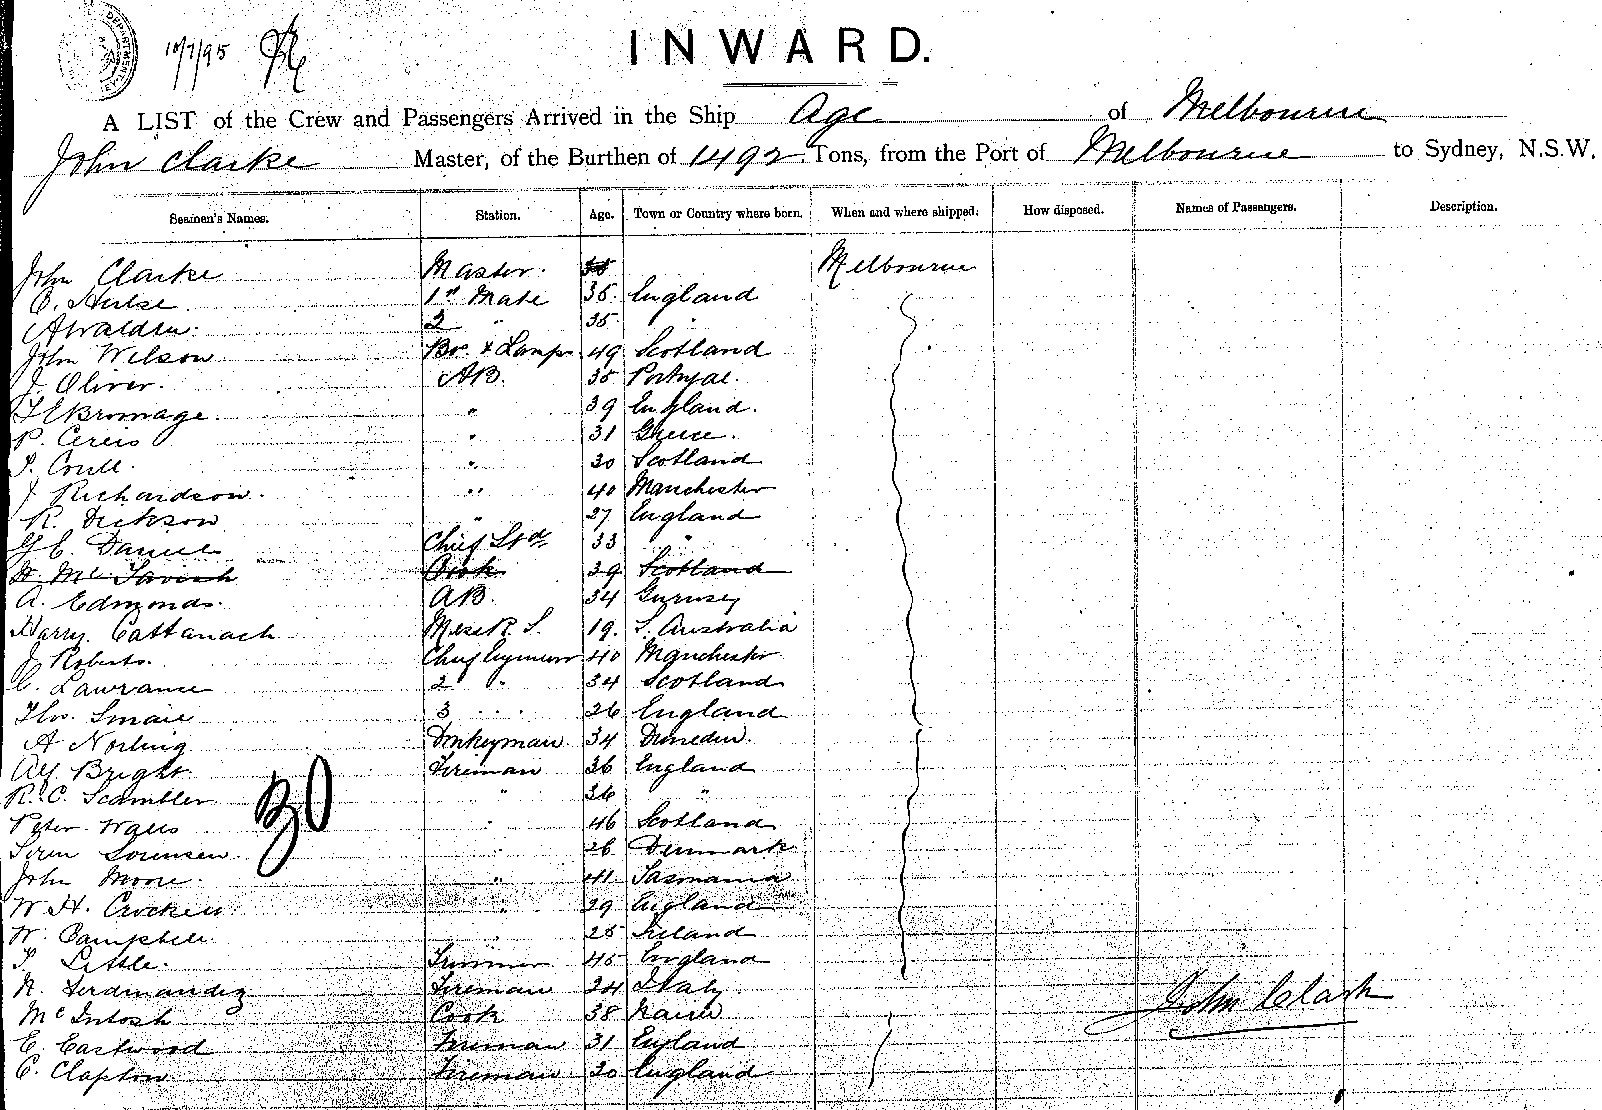 DEPARTMENT
10/7/95
INWARD.
A LIST of the Crew and Passengers Arrived in the Ship Age of Melbourne
John Clarke Master, of the Burthen of 1492 Tons, from the Port of Melbourne to Sydney, N.S.W.
Seamen's Names. Station. Age. Town or Country where born. When and where shipped. How disposed. Names of Passengers. Description.
John Clarke Master. Melbourne
C. Hulse 1st Mate 36. England
A Walden. 2 " 35. "
John Wilson Bo. & Lamps 49 Scotland
J. Oliver. AB. 35 Portugal.
T E Bromage. " 39 England.
P. " 31 Greece.
Coull. " 30 Scotland
J Richardson. " 40 Manchester
R. Dickson " 27 England
G E. Daniel Chief Std 33 "
Mc Tavish Cook 39 Scotland
A. Edmonds. AB. 34 Gurnsey
Harry. Cattanach Mess R. S. 19. S. Australia
J Roberts. Chief Engineer 40 Manchester
C. Lawrance 2 " 34 Scotland
Thos. Smail 3 " 26 England
A Norling Donkeyman 34 Dunedin.
Alf Bright Fireman 36 England
R. C. Scambler " 36 "
Peter Walls " 46 Scotland
Soren Sorensen " 26 Denmark
John Moore. " 41 Tasmania
W. H. Crockett " 29 England
W. Campbell. " 25 Ireland
T. Little. Trimmer 45 England
N. Ferdinandez Fireman 24 Italy
McIntosh Cook 38 Nairn
E. Eastwood Fireman 31 England
C. Clapton Fireman 30 England
John Clark